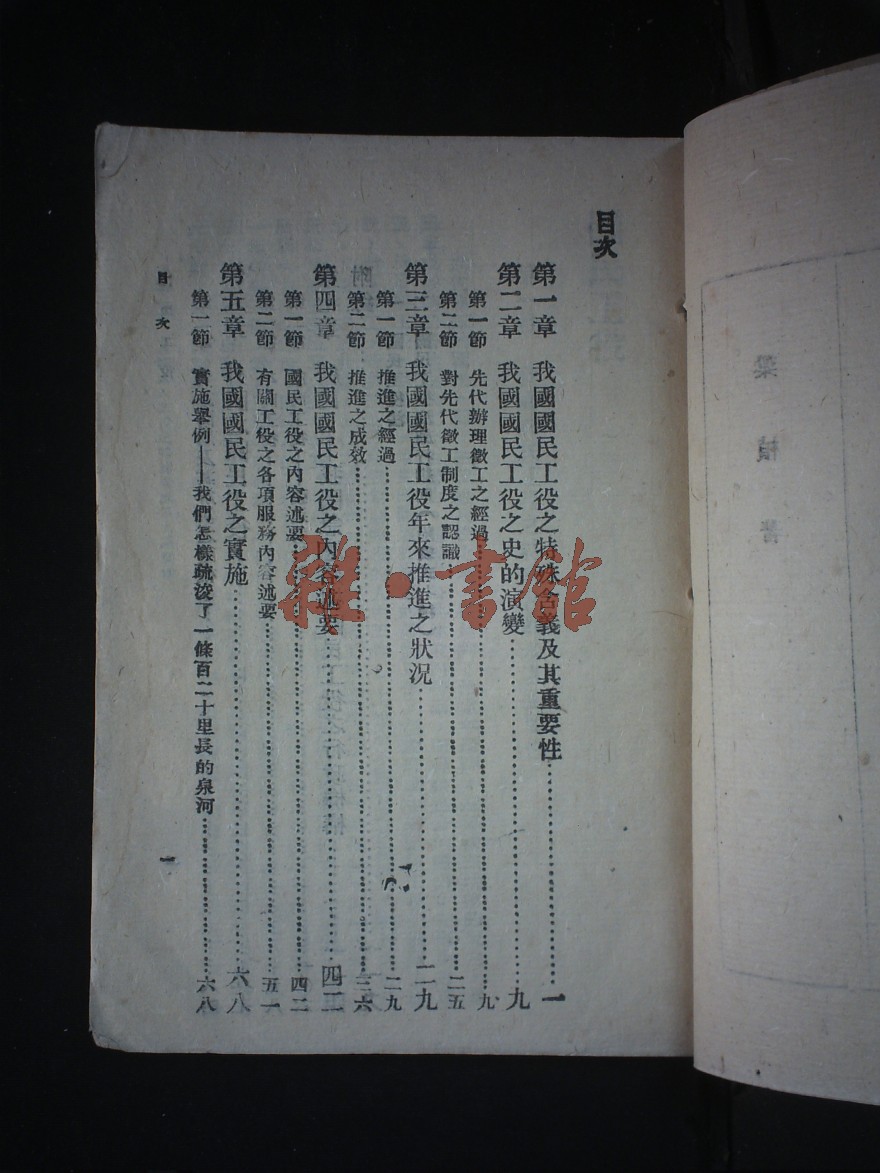 目次
第一章　我國國民工役之特殊含義及其重要性……一
第二章　我國國民工役之史的演變……九
第一節　先代辦理徵工之經過……九
第二節　對先代徵工制度之認識……二五
第三章　我國國民工役年來推進之狀況……二九
第一節　推進之經過……二九
第二節　推進之成效……三六
第四章　我國國民工役之內容述要……四二
第一節　國民工役之內容述要……四二
第二節　有關工役之各項服務內容述要……五一
第五章　我國國民工役之實施……六八
第一節　實施舉例——我們怎樣疏浚了一條百二十里長的泉河……六八
目次
一
雜·書館